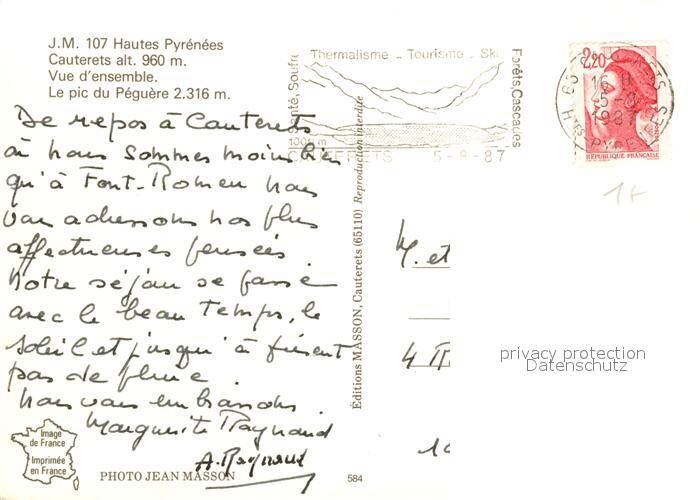 J.M. 107 Hautes Pyrénées
Cauterets alt. 960 m.
Vue d'ensemble.
Le pic du Péguère 2.316 m.
Thermalisme - Tourisme - Ski
Santé, Soufre
Forêts, Cascades
1000 m
CAUTERETS 5-8-87
2,20
65 CAUTERETS
16 H
5-8
1987
Htes PYRENEES
RÉPUBLIQUE FRANÇAISE
De repos à Cauterets
où nous sommes moins bien
qu'à Font-Romeu nous
vous adressons nos plus
affectueuses pensées.
Notre séjour se passe
avec le beau temps, le
soleil et jusqu'à présent
pas de pluie.
Nous vous embrassons.
Marguerite Raynaud
A. Raynaud
Éditions MASSON, Cauterets (65110) Reproduction interdite
M. et
4
privacy protection
Datenschutz
Image
de France
Imprimée
en France
PHOTO JEAN MASSON
584